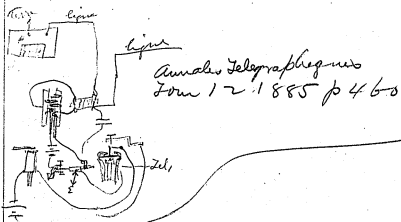 Terre
ligne
ligne
Annales Telegraphiques
Tom 12. 1885 p 460
Tel,